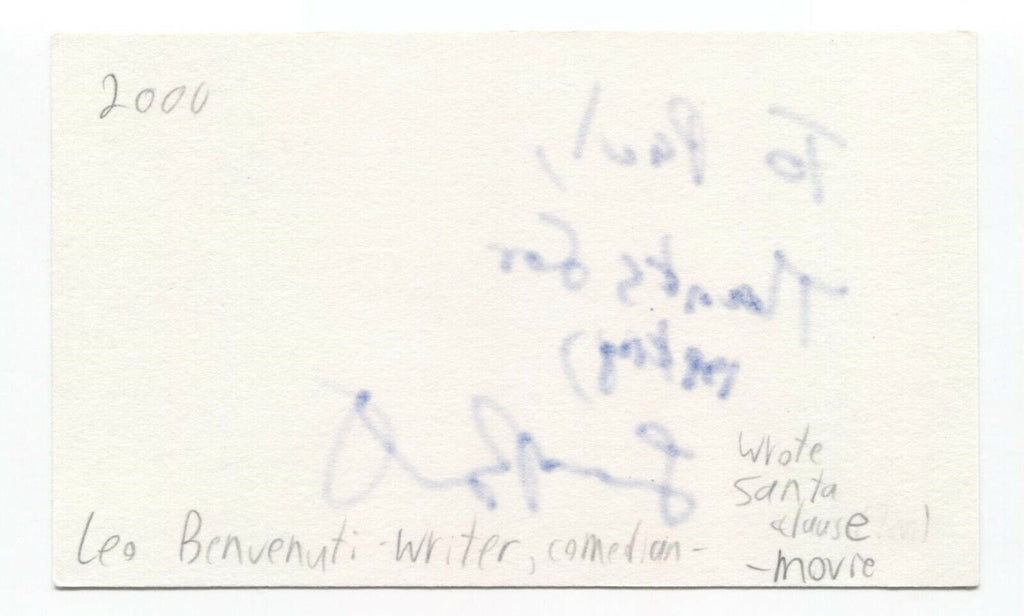 2000
To Paul,
Thanks for
writing,
Leo Benvenuti - writer, comedian -
wrote
santa
clause
- movie